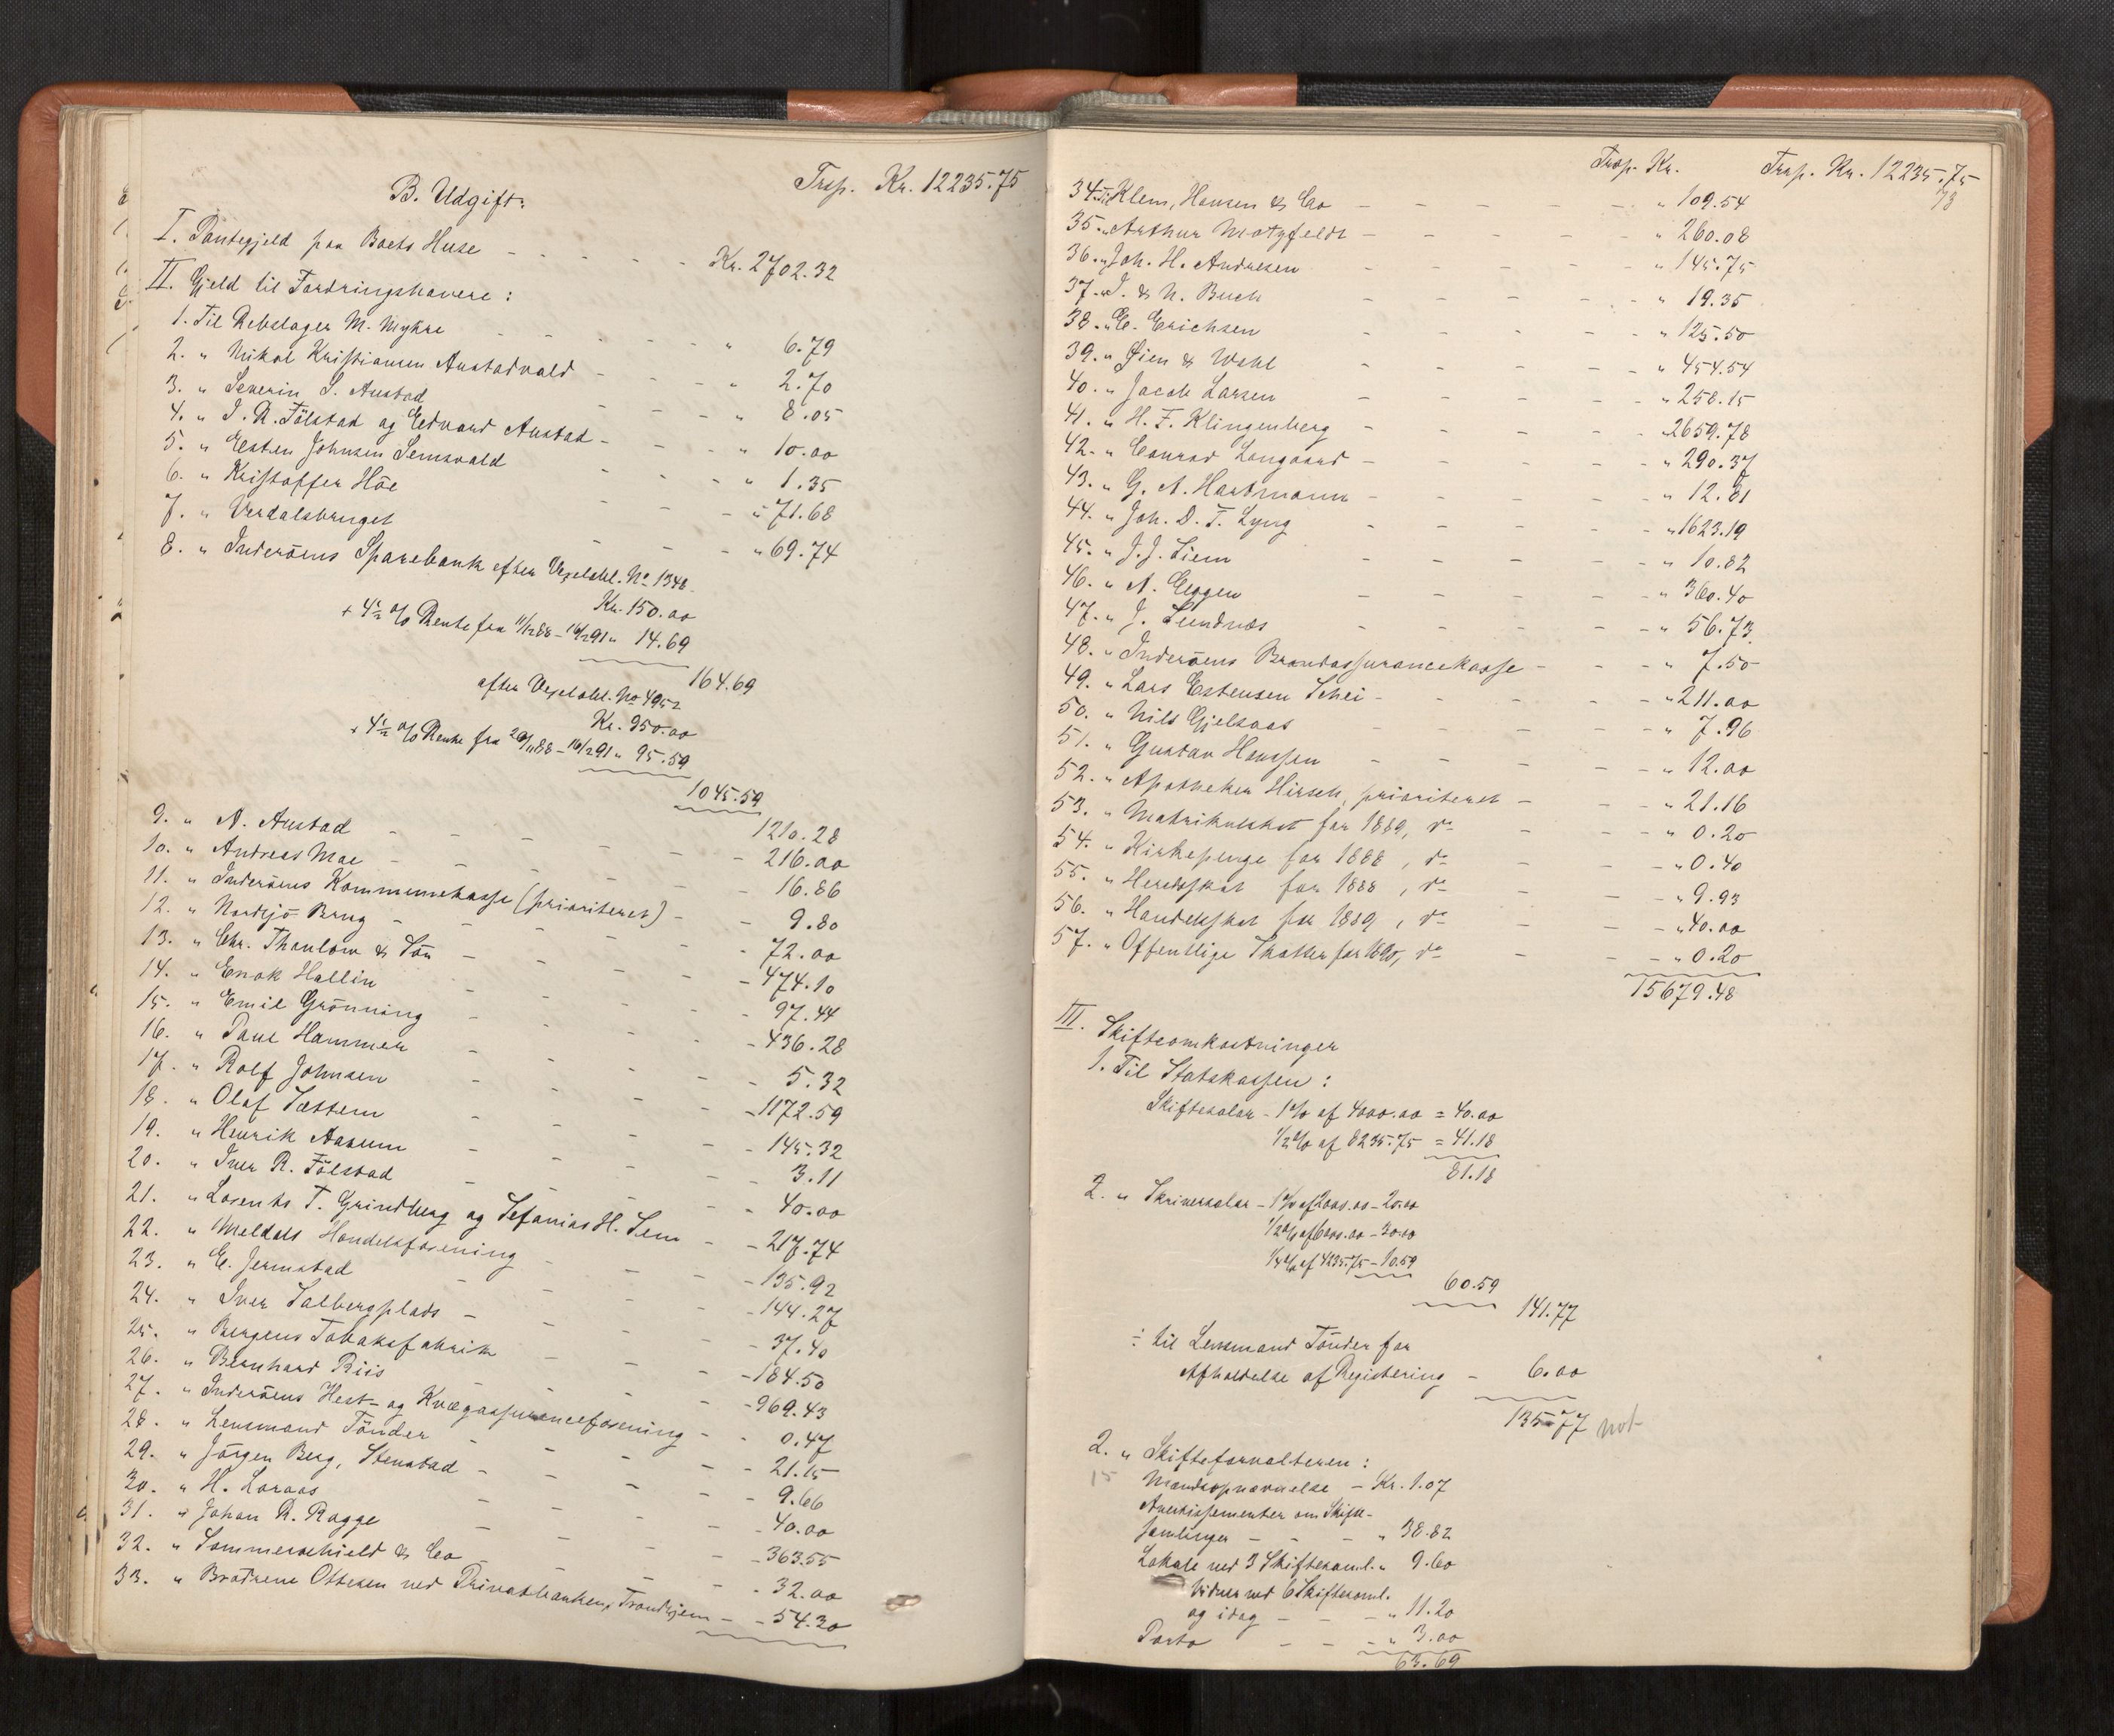 Trsp. Kr. 12235.75
B. Udgift.
I. Pantegjeld paa Boets Huse - - - - - Kr. 2702.32
II. Gjeld til Fordringshavere:
1. Til Rebslager M. Myhre - - - - " 6.79
2. " Nikol. Kristiansen Austadvald - - - " 2.70
3. " Severin S. Austad - - - " 8.05
4. " I. R. Fölstad og Edvard Austad - - - " 10.00
5. " Esten Johnsen Semsvald - - - " 1.35
6. " Kristoffer Höe - - - " 71.68
7. " Verdalsbruget - - - " 69.74
8. " Inderöens Sparebank efter Vexelobl. No 1348
Kr. 150.00
+ 4½ % Rente fra 11/12 88 - 16/2 91 " 14.69
164.69
efter Vexelobl. No 4952
Kr. 950.00
+ 4½ % Rente fra 20/11 88 - 16/2 91 " 95.59
1045.59
1210.28
9. " A. Austad - - - - 216.00
10. " Andreas Moe - - - - 16.86
11. " Inderöens Kommunekasse (prioriteret) - - 9.80
12. " Nordsjö Brug - - - - 72.00
13. " Chr. Thaulow & Sön - - - - 474.10
14. " Enok Hallin - - - - 97.44
15. " Emil Grönning - - - - 436.28
16. " Paul Hammer - - - - 5.32
17. " Rolf Johnsen - - - - 1172.59
18. " Olaf Sættem - - - - 145.32
19. " Henrik Aasum - - - - 3.11
20. " Iver R. Fölstad - - - - 40.00
21. " Lorents T. Grindberg og Sefanias H. Sem - - 217.74
22. " Meldals Handelsforening - - - - 135.92
23. " E. Jermstad - - - - 144.27
24. " Iver Salbergplads - - - - 37.40
25. " Bergens Tobaksfabrik - - - - 184.50
26. " Bernhard Riis - - - - 969.43
27. " Inderöens Hest- og Kvægassuranceforening - - 0.47
28. " Lensmand Tönder - - - - 21.15
29. " Jörgen Berg, Stenstad - - - - 9.66
30. " H. Loraas - - - - 40.00
31. " Johan R. Rogge - - - - 363.55
32. " Sommerschield & Co - - - - 32.00
33. " Brödrene Ottesen ved Privatbanken, Trondhjem - - 54.30
Trsp. Kr. Trsp. Kr. 12235.75
78
34. Til Klem, Hansen & Co - - - - - " 109.54
35. " Arthur Motzfeldt - - - - - " 260.08
36. " Joh. H. Andresen - - - - - " 145.75
37. " I. & N. Buch - - - - - " 19.35
38. " E. Erichsen - - - - - " 125.50
39. " Öien & Wahl - - - - - " 454.54
40. " Jacob Larsen - - - - - " 258.15
41. " H. F. Klingenberg - - - - - " 2659.78
42. " Conrad Langaard - - - - - " 290.37
43. " G. A. Hartmann - - - - - " 12.81
44. " Joh. D. T. Lyng - - - - - " 1623.19
45. " J. J. Liem - - - - - " 10.82
46. " A. Eggen - - - - - " 360.40
47. " J. Sundnæs - - - - - " 56.73
48. " Inderöens Brandassurancekasse - - - " 7.50
49. " Lars Estensen Schei - - - - - " 211.00
50. " Nils Gjelsaas - - - - - " 7.96
51. " Gustav Haugsen - - - - - " 12.00
52. " Apotheker Hirsch, prioriteret - - - " 21.16
53. " Matrikulskat for 1889, do - - - " 0.20
54. " Kirkepenge for 1888, do - - - " 0.40
55. " Heredsskat for 1888, do - - - " 9.93
56. " Handelsskat for 1889, do - - - " 40.00
57. " Offentlige Skatter for 1890, do - - - " 0.20
15679.48
III. Skifteomkostninger
1. Til Statskassen:
Skiftesalær - 1% af 4000.00 = 40.00
1/2% af 8235.75 = 41.18
81.18
2. " Skriversalær - 1% af 2000.00 - 20.00
1/2% af 6000.00 - 30.00
1/4% af 4235.75 - 10.59
60.59
141.77
÷ til Lensmand Tönder for
Afholdelse af Registering - 6.00
135.77 not
2. " Skifteforvalteren:
15 Mandsopnævnelse - Kr. 1.07
Avertissementer om Skifte-
samlinger - - - " 38.82
Lokale ved 3 Skiftesaml. " 9.60
Vidner ved 6 Skiftesaml.
og idag - - - " 11.20
Porto - - - " 3.00
63.69